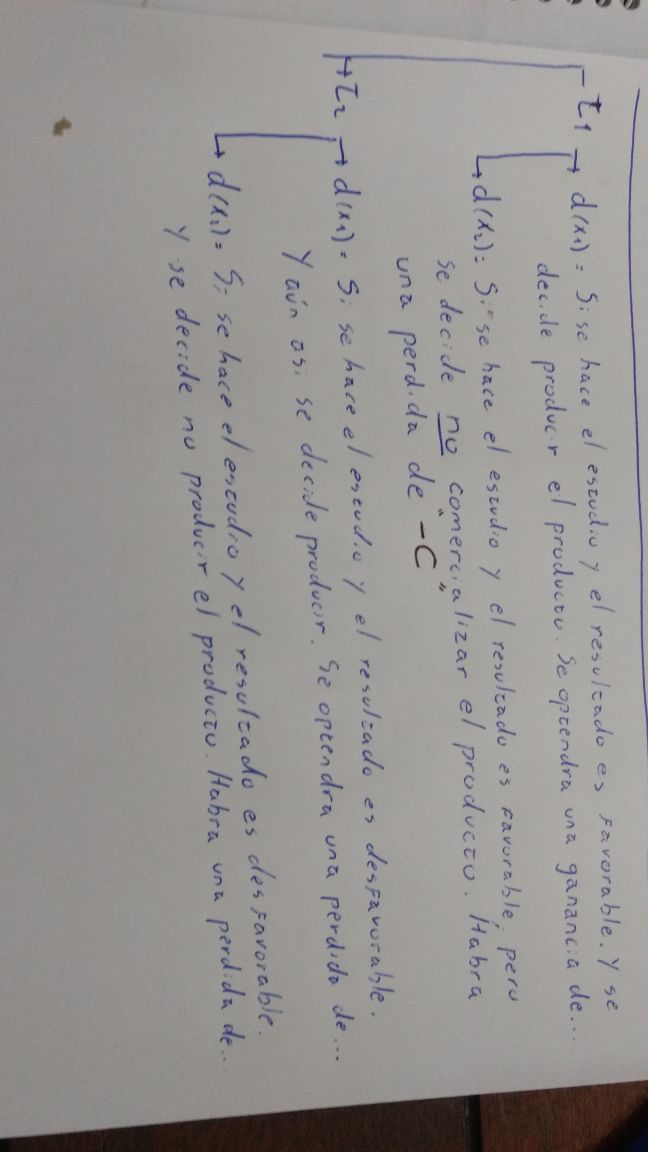 I1 → d(x1) = Si se hace el estudio y el resultado es Favorable. Y se
decide producir el producto. Se optendra una ganancia de...
d(x2) = Si se hace el estudio y el resultado es Favorable, pero
se decide no comercializar el producto. Habra
una perdida de "-C"
I2 → d(x1) = Si se hace el estudio y el resultado es desfavorable.
Y aún asi se decide producir. Se optendra una perdida de...
d(x2) = Si se hace el estudio y el resultado es desfavorable.
Y se decide no producir el producto. Habra una perdida de...